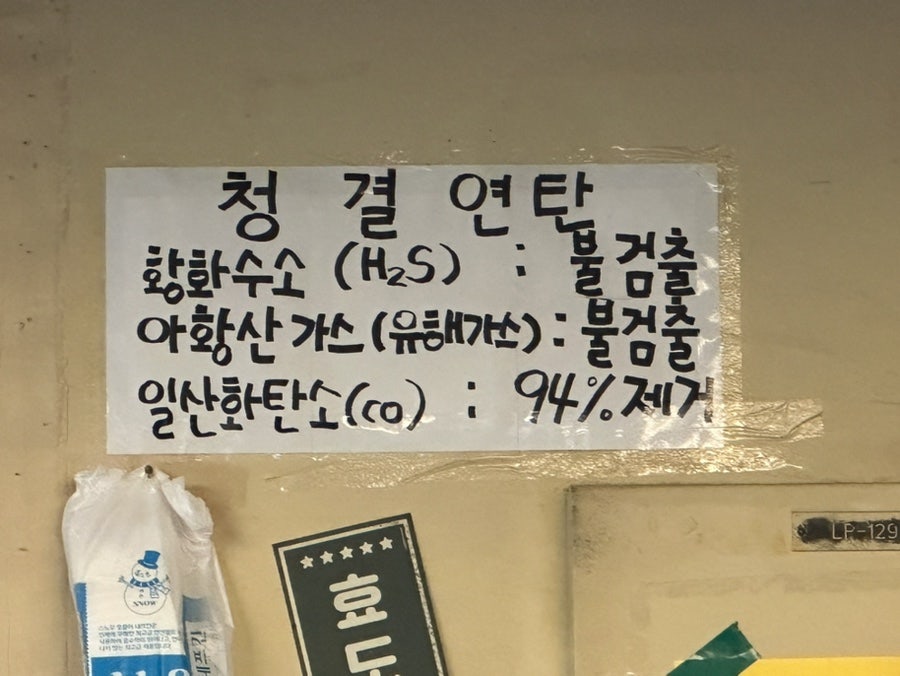 청 결 연탄
황화수소 (H₂S) : 불검출
아황산가스(유해가스) : 불검출
일산화탄소(CO) : 94% 제거
LP-129
SNOW
★★★★★
효도